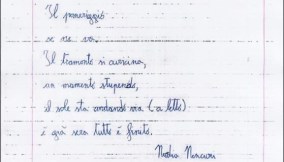 Il pomeriggio
se ne va.
Il tramonto si avvicina,
un momento stupendo,
il sole sta andando via (a letto)
è già sera tutto è finito.